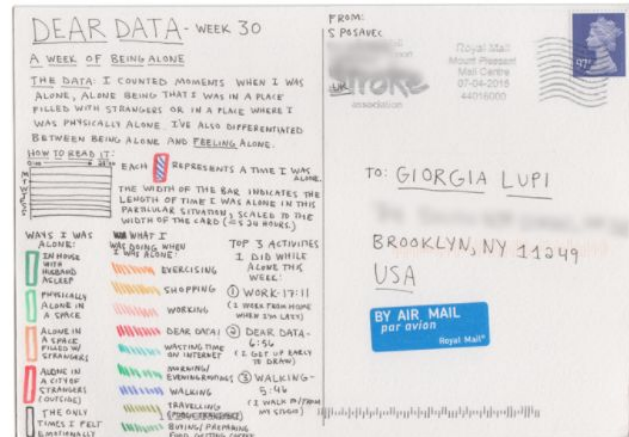 DEAR DATA - WEEK 30
A WEEK OF BEING ALONE
THE DATA: I COUNTED MOMENTS WHEN I WAS
ALONE, ALONE BEING THAT I WAS IN A PLACE
FILLED WITH STRANGERS OR IN A PLACE WHERE I
WAS PHYSICALLY ALONE. I'VE ALSO DIFFERENTIATED
BETWEEN BEING ALONE AND FEELING ALONE.
HOW TO READ IT:
EACH REPRESENTS A TIME I WAS
ALONE.
THE WIDTH OF THE BAR INDICATES THE
LENGTH OF TIME I WAS ALONE IN THIS
PARTICULAR SITUATION, SCALED TO THE
WIDTH OF THE CARD (= 24 HOURS.)
WAYS I WAS
ALONE:
IN HOUSE
WITH
HUSBAND
ASLEEP
PHYSICALLY
ALONE IN
A SPACE
ALONE IN
A SPACE
FILLED W/
STRANGERS
ALONE IN
A CITY OF
STRANGERS
(OUTSIDE)
THE ONLY
TIMES I FELT
EMOTIONALLY
WHAT I
WAS DOING WHEN
I WAS ALONE:
EXERCISING
SHOPPING
WORKING
DEAR DATA!
WASTING TIME
ON INTERNET
MORNING/
EVENING ROUTINGS
WALKING
TRAVELLING
(PUBLIC TRANSPORT)
BUYING/PREPARING
FOOD, GETTING COFFEE
TOP 3 ACTIVITIES
I DID WHILE
ALONE THIS
WEEK:
① WORK-17:11
(I WORK FROM HOME
WHEN I'M LAZY)
② DEAR DATA-
6:56
(I GET UP EARLY
TO DRAW)
③ WALKING-
5:46
(I WALK TO/FROM
MY STUDIO)
FROM:
S POSAVEC
UK
association
Royal Mail
Mount Pleasant
Mail Centre
07-04-2015
44016000
TO: GIORGIA LUPI
BROOKLYN, NY 11249
USA
BY AIR MAIL
par avion
Royal Mail®